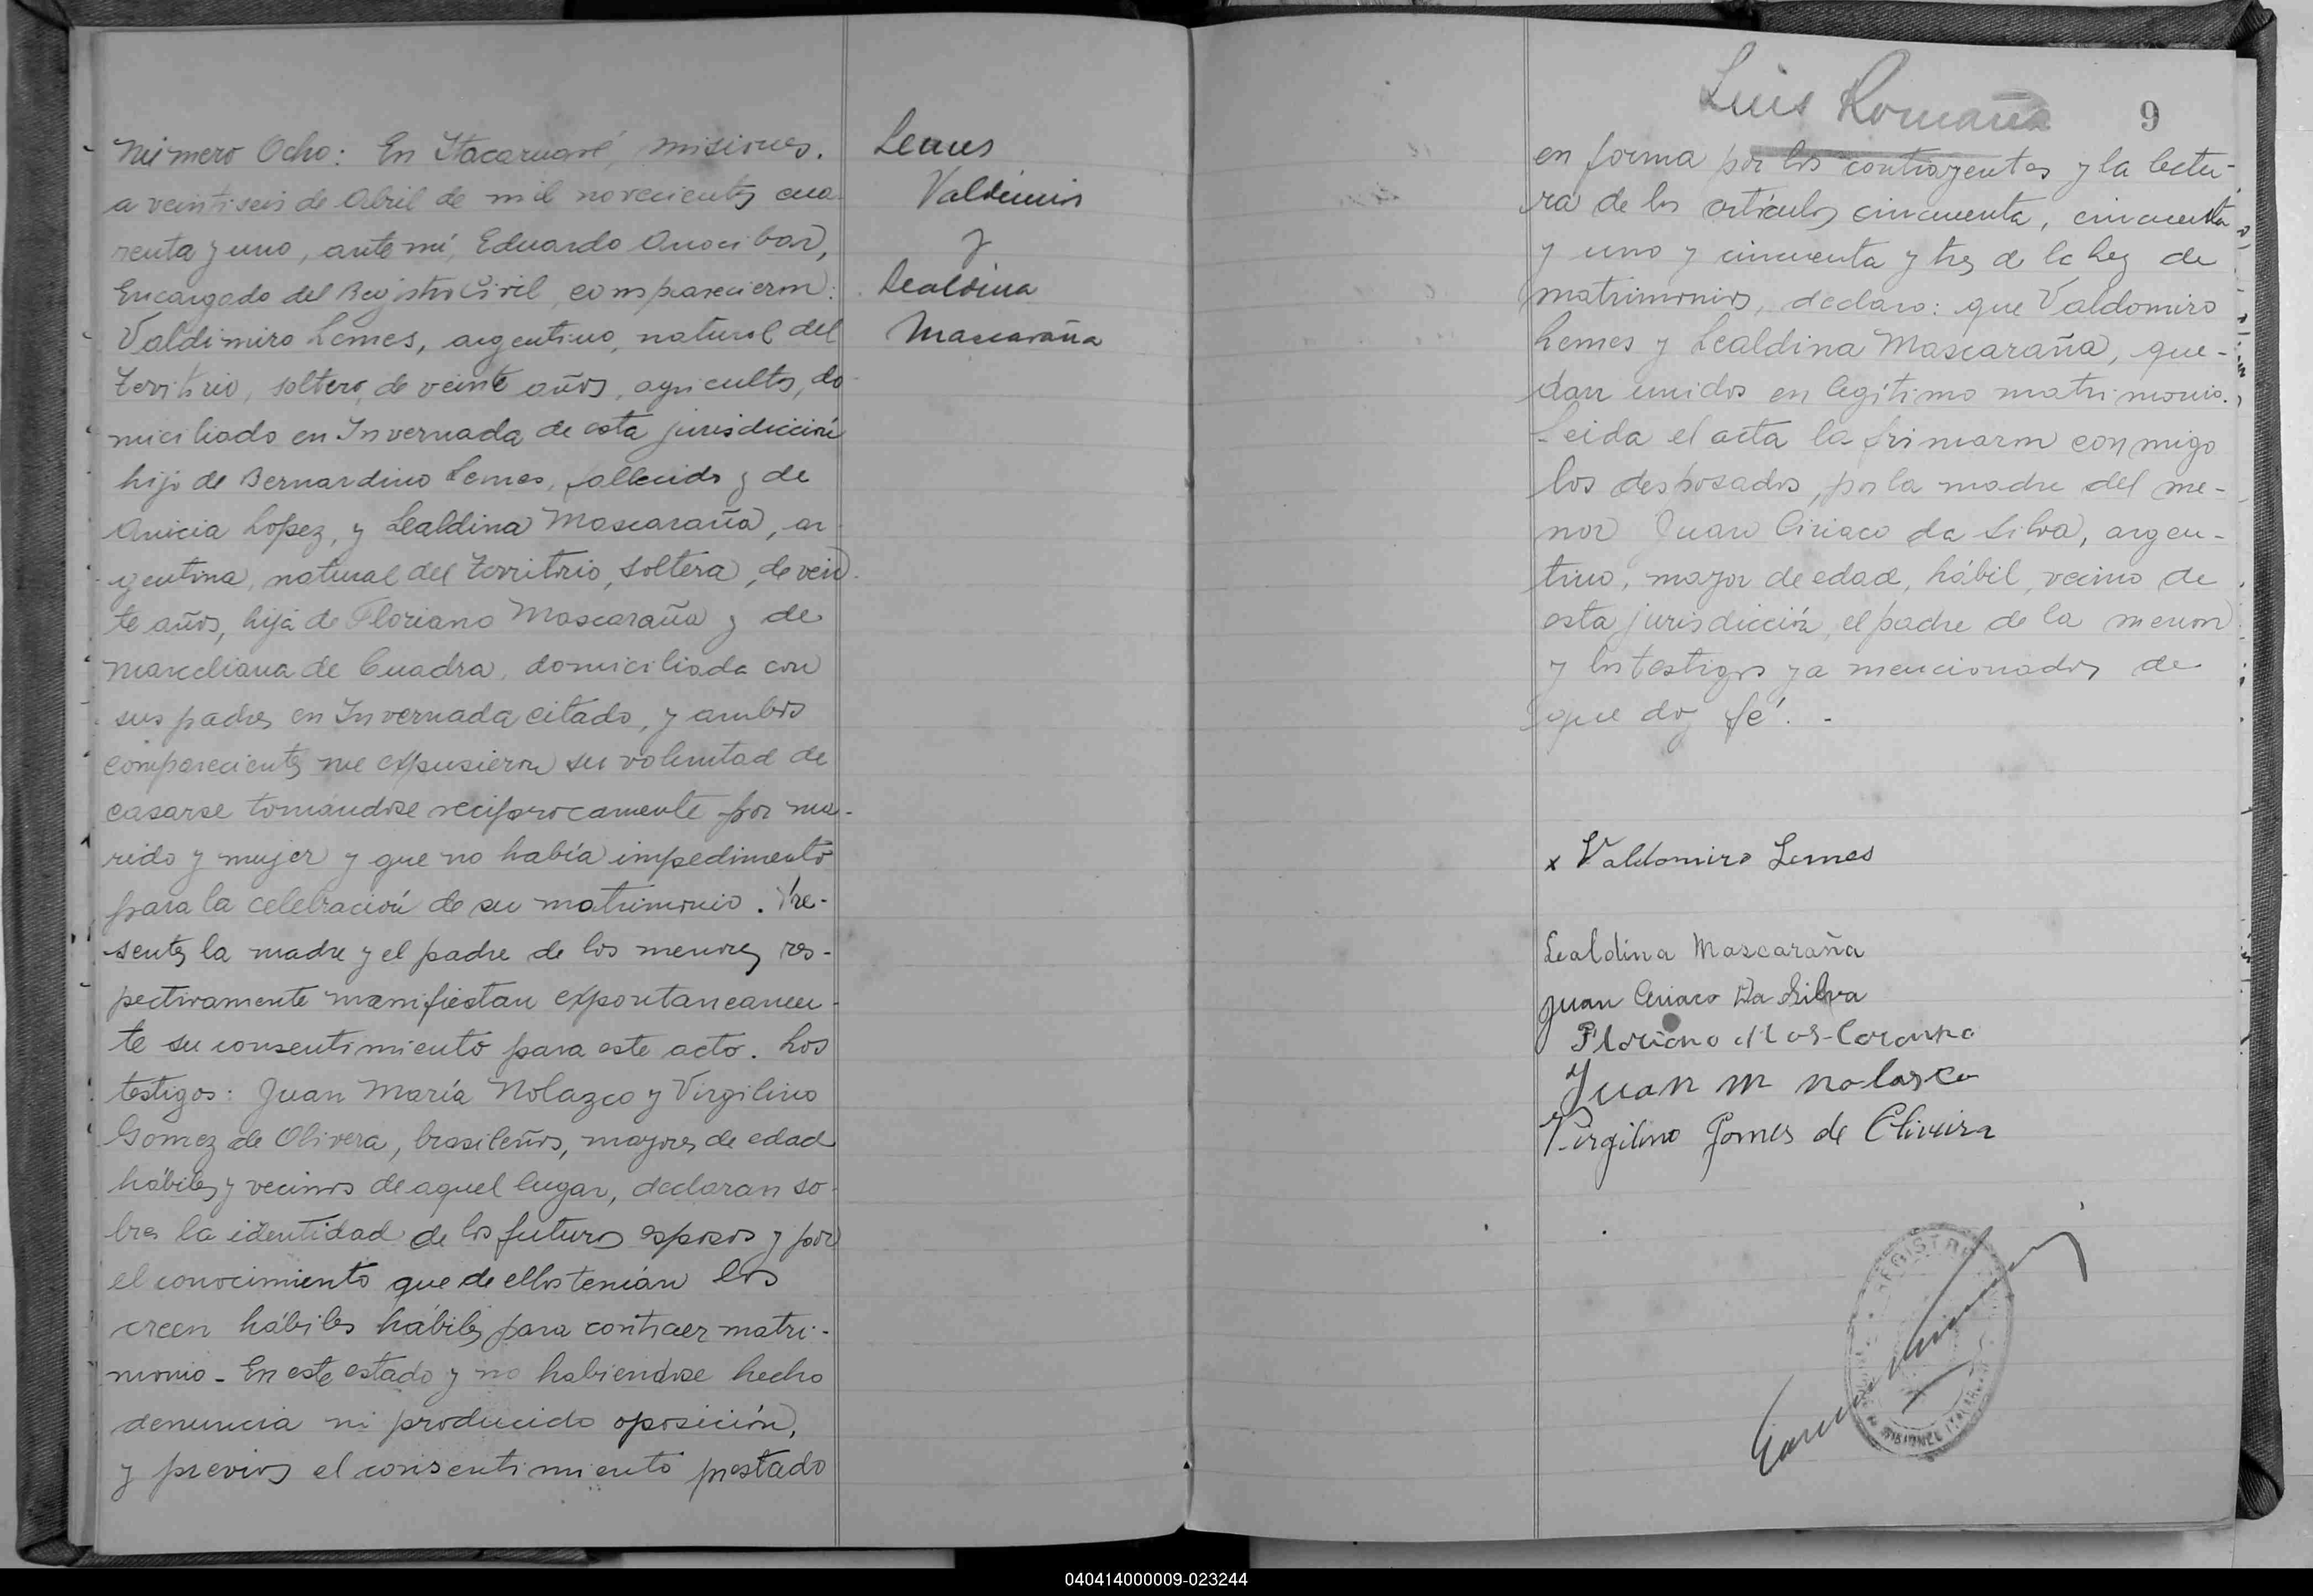 Número Ocho: En Itacaruaré, Misiones,
a veintiseis de Abril de mil novecientos cua-
renta y uno, ante mi, Eduardo Anocibar,
Encargado del Registro Civil, comparecieron:
Valdimiro Lemes, argentino, natural del
Territorio, soltero, de veinte años, agricultor, do-
miciliado en Invernada de esta jurisdicción
hijo de Bernardino Lemes, fallecido y de
Anicia Lopez, y Lealdina Mascaraña, ar-
gentina, natural del Territorio, soltera, de vein-
te años, hija de Floriano Mascaraña y de
Marceliana de Cuadra, domiciliada con
sus padres en Invernada citado, y ambos
comparecientes me expusieron su voluntad de
casarse tomándose reciprocamente por ma-
rido y mujer y que no había impedimento
para la celebración de su matrimonio. Pre-
sentes la madre y el padre de los menores res-
pectivamente manifiestan expontaneamen-
te su consentimiento para este acto. Los
testigos: Juan María Nolazco y Virgilino
Gomez de Olivera, brasileños, mayores de edad
hábiles y vecinos de aquel lugar, declaran so-
bre la identidad de los futuros esposos y por
el conocimiento que de ellos tenían los
creen hábiles hábiles para contraer matri-
monio - En este estado y no habiendose hecho
denuncia ni producido oposición,
y previos el consentimiento prestado
Lemes
Valdimiro
y
Lealdina
Mascaraña
Luis Romaña
9
en forma por los contrayentes y la lectu-
ra de los artículos cincuenta, cincuenta
y uno y cincuenta y tres de la ley de
matrimonios, declaro: que Valdomiro
Lemes y Lealdina Mascaraña, que-
dan unidos en legítimo matrimonio.
Leida el acta la firmaron conmigo
los desposados, por la madre del me-
nor Juan Ciriaco da Silva, argen-
tino, mayor de edad, hábil, vecino de
esta jurisdicción, el padre de la menor
y los testigos ya mencionados de
que doy fé. -
x Valdomiro Lemes
Lealdina Mascaraña
Juan Ciriaco Da Silva
Floriano Mascaraña
Juan M Nolasco
Virgilino Gomes de Oliveira
REGISTRO
MISIONES
040414000009-023244